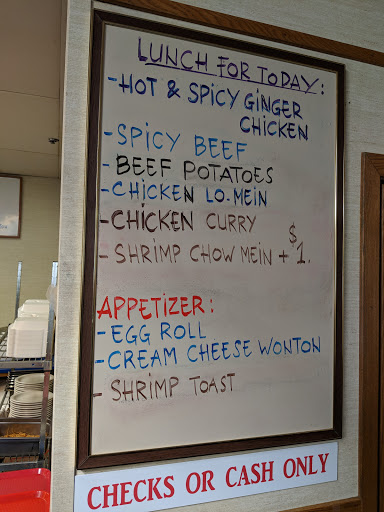 LUNCH FOR TODAY:
-HOT & SPICY GINGER
CHICKEN
-SPICY BEEF
-BEEF POTATOES
-CHICKEN LO.MEIN
-CHICKEN CURRY
-SHRIMP CHOW MEIN + $1.
APPETIZER:
-EGG ROLL
-CREAM CHEESE WONTON
-SHRIMP TOAST
CHECKS OR CASH ONLY